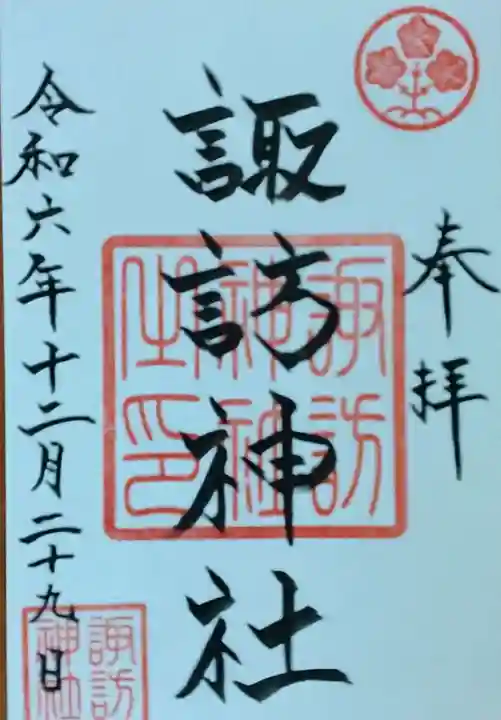 奉拝
諏訪神社
諏訪
神社
令和六年十二月二十九日
諏訪
神社